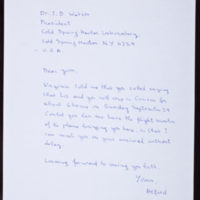 Dr. J. D. Watson
President
Cold Spring Harbor Laboratory
Cold Spring Harbor NY 11724
U.S.A.
Dear Jim,
told me that you called saying
that Liz and you will stop in
about 6 hours on Sunday September 24
Could you let me have the flight number
of the plane bringing you here so that I
can meet you on your arrival without
delay.
Looking forward to seeing you both
Yours